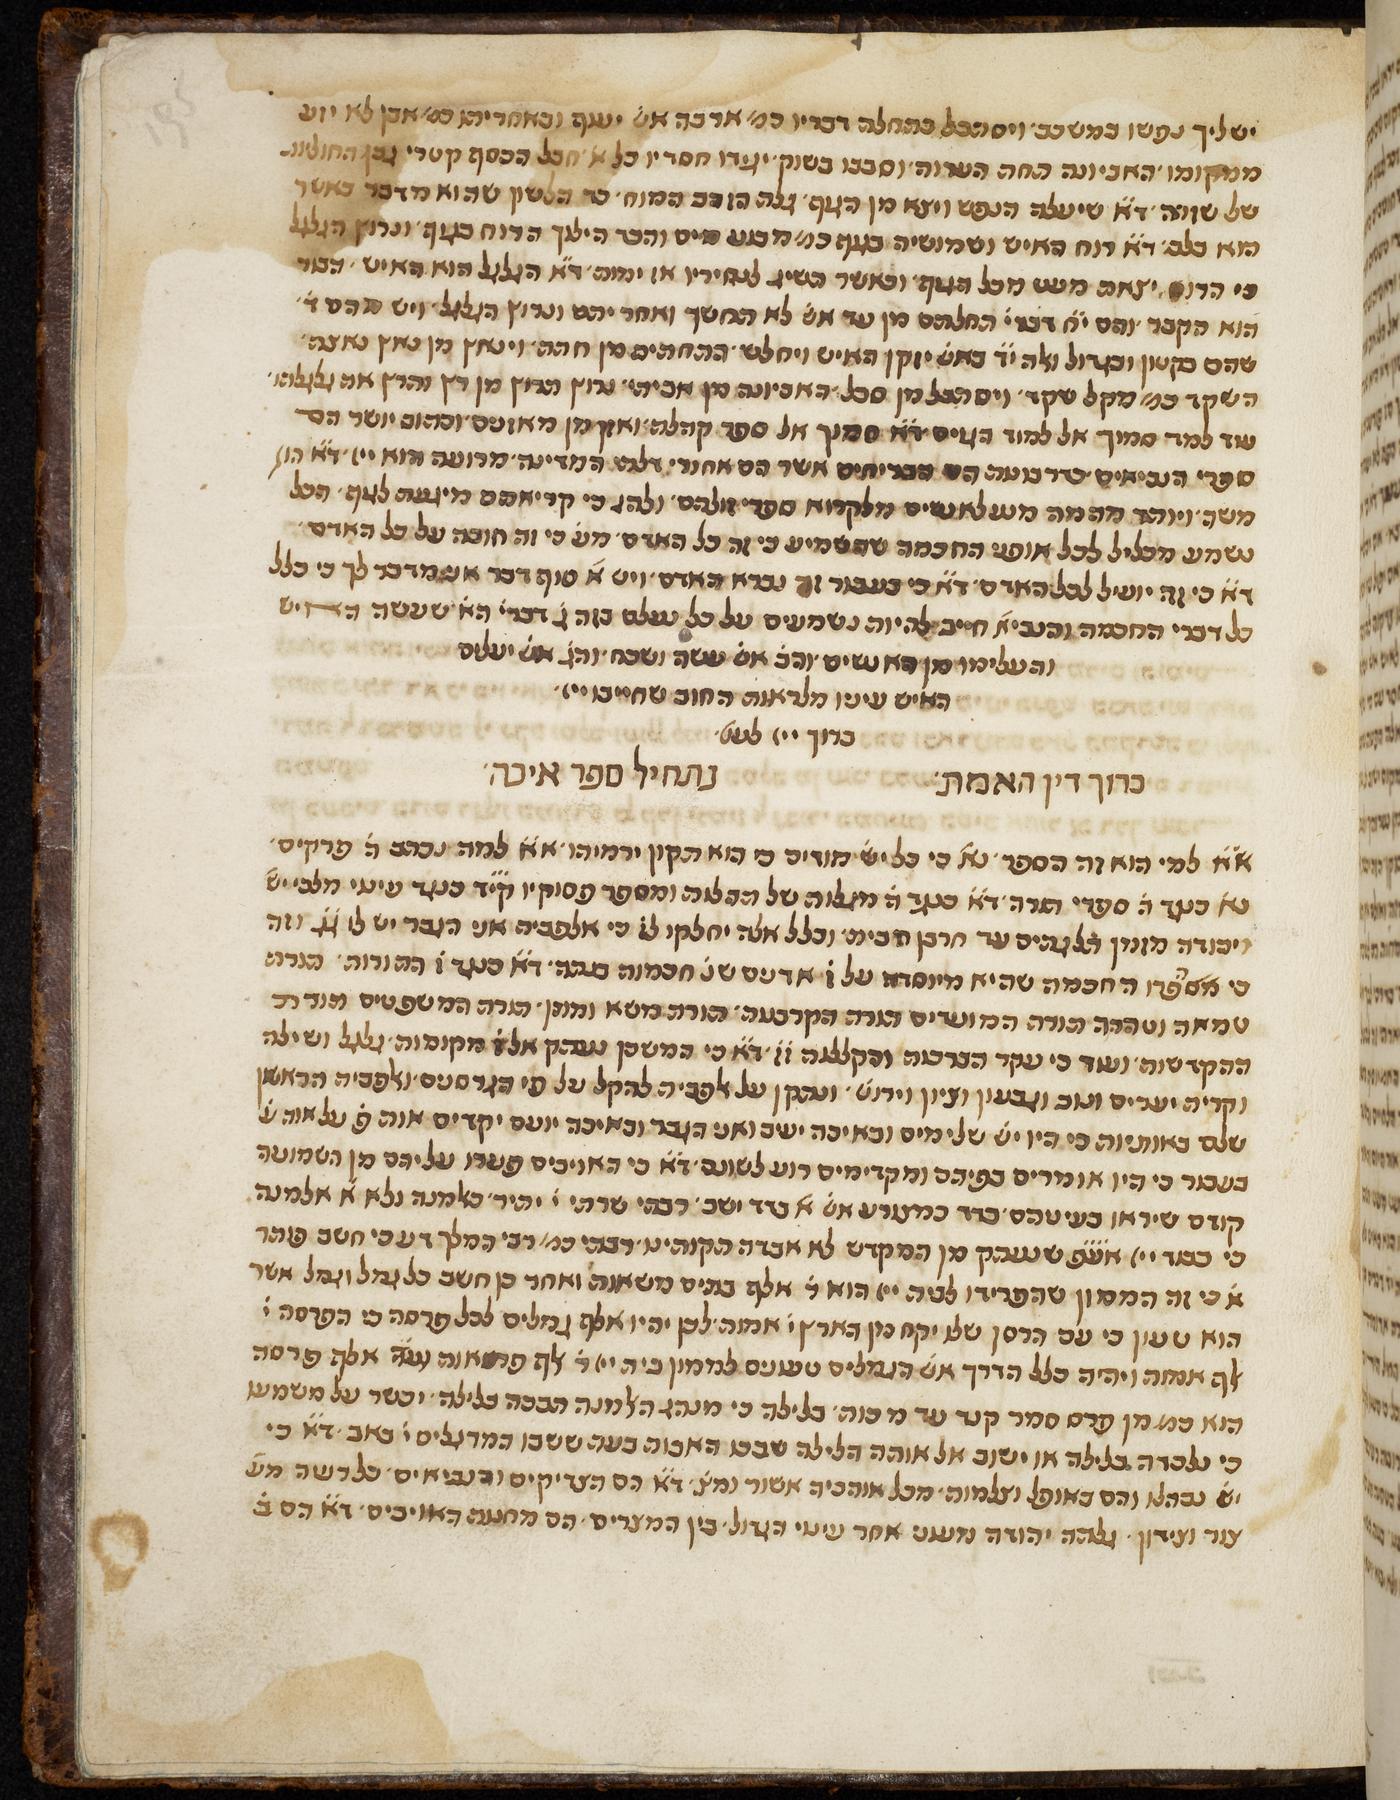 ישליך נפשו במשכב׳ ויסתבל בתחלה דבריו כמ׳ ארבה אש׳ יעוף ובאחריתו כמ׳ אבן לא יזוע
ממקומו׳ האביונה תחת הערוה׳ וסבבו בשוק׳ יגידו חסדיו כל א׳ חבל הכסף קשרי
של שזרה׳ ד״א שיעלה הנפש ויצא מן הגוף׳ גלת הזהב המוח׳ כד הלשון שהוא מדבר כאשר
הוא בלב׳ ד״א רוח האיש ושמושיה בגוף כמ׳ מבוע מים והכד הילוך הרוח בגוף׳ ונרוץ הגלגל
כי הרוח יצאת מעט מכל הגוף׳ וכאשר השיג לנחיריו אז ימות׳ ד״א הגלגל הוא האיש׳ הבור
הוא הקבר׳ והם י״ח דברי׳ התלהם מן עד אש׳ לא תחשך ואחר יהם ונרוץ הגלגל׳ ויש מהם ד׳
שהם בקטון ובגדול ואלה י״ד באש׳ יזקן האיש ויחלש׳ התחתים מן חתת׳ וינאץ מן נאץ נאצה׳
השקד כמ׳ מקל שקד׳ ויסתבל מן סבל׳ האביונה מן אביתי׳ נרוץ תרוץ מן רץ והרץ את גלגלתו׳
עוד למד סמוך אל למוד הגוים ד״א סמוך אל ספר קהלת׳ ואזן מן מאזנים׳ וכתוב יושר הם
ספרי הנביאים׳ כדרבונות הם הבריחים אשר הם אחורי דלת המדינה׳ מרועה הוא ייי׳ ד״א
משה׳ ויותר מהמה מנע לאנשים מלקרוא ספרי זולתם׳ ולהג כי קריאתם מיגעת לגוף׳ הכל
נשמע מכליל לכל אופני החכמה שתשמיע כי זה כל האדם׳ מע׳ כי זה חובה על כל האדם׳
ד״א כי זה יועיל לכל האדם׳ ד״א כי בעבור זה נברא האדם׳ ויש א׳ סוף דבר אני מדבר לך כי כלל
כל דברי החכמה והנביא חייב להיות נשמעים על כל נעלם בזה ג׳ דברי׳ הא׳ שעשה האיש
והעלימו מן האנשים׳ והב׳ אש׳ עשה ושכח׳ והג׳ אש׳ יעלים
האיש עינו מלראות החוב שחייבו ייי׳
ברוך ייי לעו׳
ברוך דין האמת׳ נתחיל ספר איכה׳
א״א למי הוא זה הספר׳ נא׳ כי כל יש׳ מודים כי הוא תקון ירמיהו׳ א״א למה נכתב ה׳ פרקים׳
נא׳ כנגד ה׳ ספרי תורה׳ ד״א כנגד ה׳ מגלות של הגלות ומספר פסוקיו קי״ד כנגד עינוי מלכי יש׳
ויהודה מזמן הגלגהים עד חרבן הבית׳ וכלל אלה יחלקו לו׳ כי אלפביה אני הגבר יש לו ג״ג וזה
כי אספרו החכמה שהיא מיוסדת על ז׳ אדנים שנ׳ חכמות בנתה׳ ד״א כנגד ז׳ התורות׳ תורת
טמאה וטהרה תורה המועדים תורת הקרבנות׳ תורת משא ומתן׳ תורה המשפטים תורת
ההקדשות׳ ועוד כי עקר הברכות והקללות ז״ז׳ ד״א כי המשכן נעתק אל ז׳ מקומות׳ גלגל ושילה
וקרית יערים ונוב וגבעון וציון וירוש׳ ונתקן על אלפביה להקל על פי הגרסנים׳ ואלפביה הראשון
שלם באותיות כי היו יש׳ שלימים ובאיכה ישב ואני הגבר ובאיכה יועם יקדים אות פ׳ על אות ע׳
בעבור כי היו אומרים בפיהם ומקדימים רוע לשונם׳ ד״א כי האויבים פערו עליהם מן השמועה
קודם שיראו בעיניהם׳ בדד כמצורע אש׳ א׳ בדד ישב׳ רבתי שרתי י׳ יתיר׳ כאלמנה ולא א׳ אלמנה
כי כבוד ייי שנעתק מן המקדש לא אבדה תקותינו׳ רבתי כמ׳ רבי המלך דע כי חשב פותר
א׳ כי זה הממון שהפרידו לבית ייי הוא ר׳ אלף בתים משאות ואחר כן חשב כל גמל וגמל אשר
הוא טעון כי עם הרסן שלו יקח מן הארץ י׳ אמות׳ לכן יהיו אלף גמלים לכל פרסה כי הפרסה י׳
אלף אמות ויהיה כלל הדרך אש׳ הגמלים טעונים לממון בית ייי ר׳ אלף פרסאות אלף פרסה
הוא כמ׳ מן פרס סמר קנד עד מכות׳ בלילה כי מנהג האלמנה הבכה בלילה׳ יכשר על משמעו
כי נלכדה בלילה או ישוב אל אותה הלילה שבכו האבות בעת ששבו המרגלים׳ ט׳ באב׳ ד״א כי
יש׳ נבהלו והם באופל וצלמות׳ מכל אוהביה אשור ומצ׳׳ ד״א הם הצדיקים והנביאים׳ כל רעיה מע׳
צור וצידון׳ גלתה יהודה מעוני אחר עינוי הגדול׳ בין המצרים׳ הם מחנות האויבים׳ ד״א הם ב׳